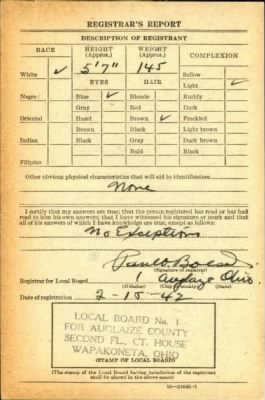 REGISTRAR'S REPORT
DESCRIPTION OF REGISTRANT
RACE HEIGHT (Approx.) WEIGHT (Approx.) COMPLEXION
White ✓ 5'7" 145 Sallow
EYES HAIR Light ✓
Negro Blue ✓ Blonde Ruddy
Gray Red Dark
Oriental Hazel Brown ✓ Freckled
Brown Black Light brown
Indian Black Gray Dark brown
Bald Black
Filipino
Other obvious physical characteristics that will aid in identification
None
I certify that my answers are true; that the person registered has read or has had
read to him his own answers; that I have witnessed his signature or mark and that
all of his answers of which I have knowledge are true, except as follows:
No Exceptions
Paul
(Signature of registrar)
Registrar for Local Board 1 Auglaize Ohio.
(Number) (City or county) (State)
Date of registration 2-15-42
LOCAL BOARD No. 1
FOR AUGLAIZE COUNTY
SECOND FL., CT. HOUSE
WAPAKONETA, OHIO
(STAMP OF LOCAL BOARD)
(The stamp of the Local Board having jurisdiction of the registrant
shall be placed in the above space.)